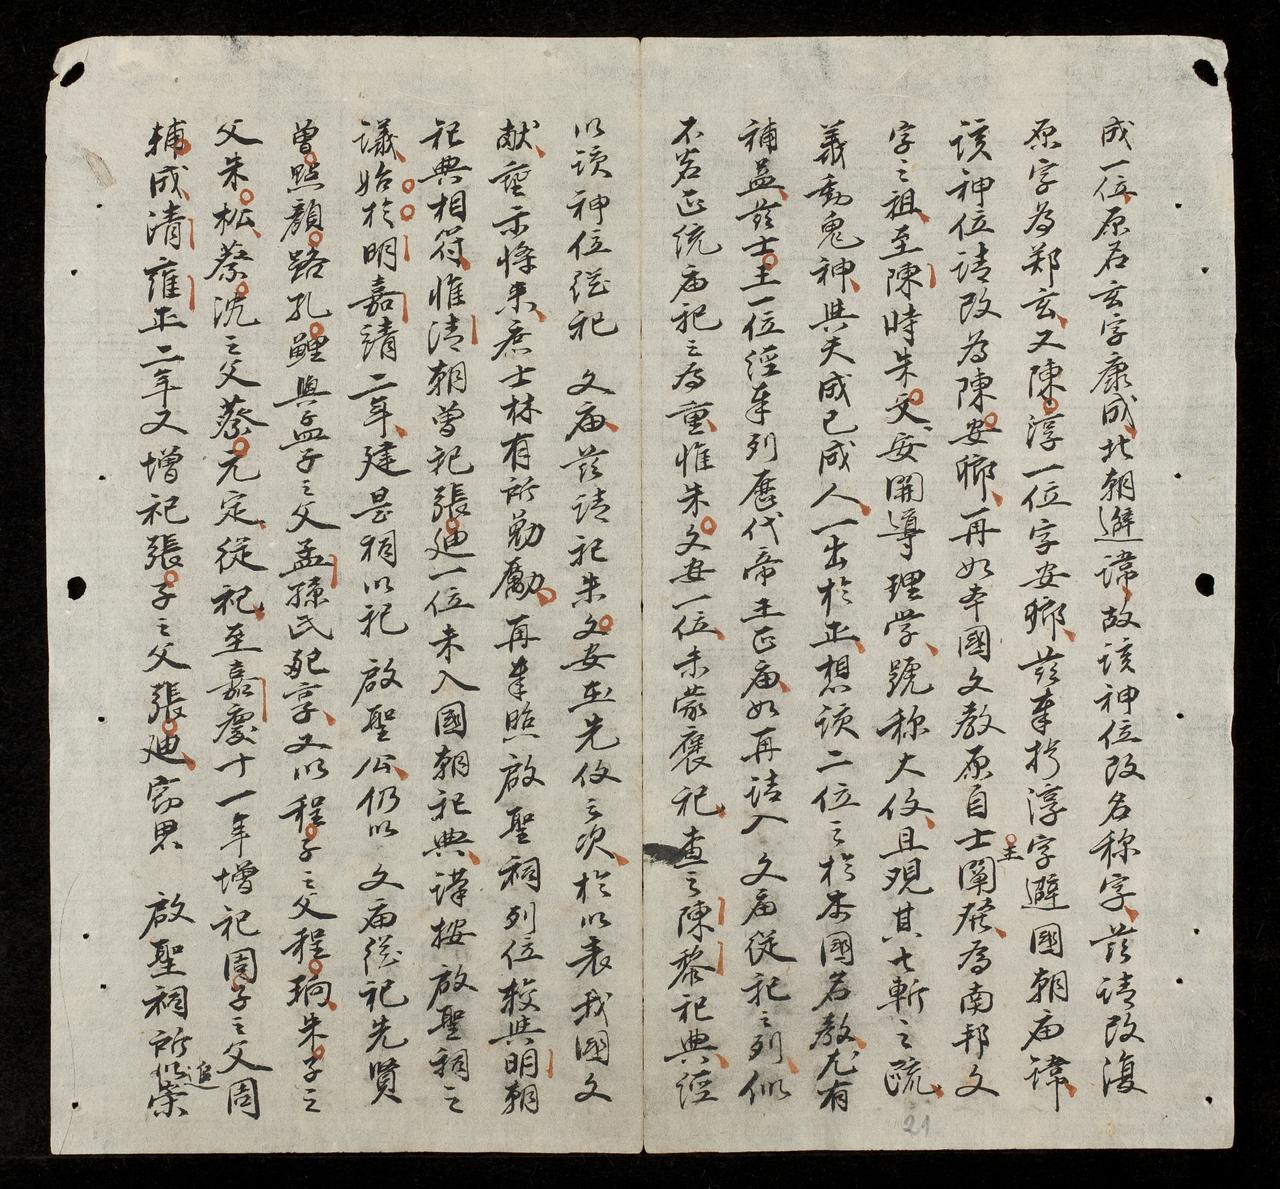 成一位原名玄字康成北朝避諱故该神位改名称字茲請改復
原字為郑玄又陳淳一位字安鄉茲奉抄淳字避國朝庙諱
该神位請改為陳安鄉再如本國文教原自士王闡發為南邦文
字之祖至陳時朱文安開導理学號称大伩且观其七斬之疏
義動鬼神與夫成已成人一出於正想该二位之於本國名教尤有
補益茲士王一位經奉列歷代帝王正庙如再請入文庙從祀之列似
不若正統庙祀之為重惟朱文安一位未蒙褒祀查之陳黎祀典經
以该神位從祀文庙茲請祀朱文安在先伩之次於以表我國文
献垂示將来庶士林有所勸勵再奉照啟聖祠列位較與明朝
祀典相符惟清朝曾祀張迪一位未入國朝祀典謹按啟聖祠之
議始於明嘉靖二年建是祠以祀啟聖公仍以文庙從祀先賢
曾點顏路孔鯉與孟子之父孟孫氏配享又以程子之父程珦朱子之
父朱松蔡沈之父蔡元定從祀至嘉慶十一年增祀周子之父周
輔成清雍正二年又增祀張子之父張迪窃思啟聖祠所以追崇
21